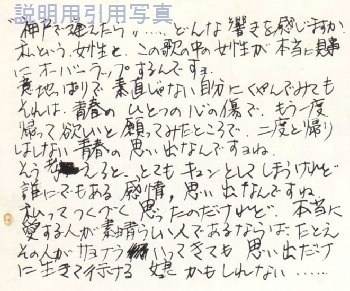 説明用引用写真
"神戸で逢えたら"……どんな響きを感じますか
私という女性と、この歌の中の女性が本当に見事
にオーバーラップするんですョ。
意地っぱりで素直じゃない自分にくやんでみても
それは、青春のひとつの心の傷で、もう一度
帰って欲しいと願ってみたところで、二度と帰り
はしない青春の思い出なんですョね。
そう考えると、とてもキュンとしてしまうけれど
誰にでもある感情、思い出なんですね。
私ってつくづく思ったのだけれど、本当に
愛する人が素晴らしい人であるならば、たとえ
その人がサヨナラいってきても思い出だけ
に生きて行ける 女かもしれない……